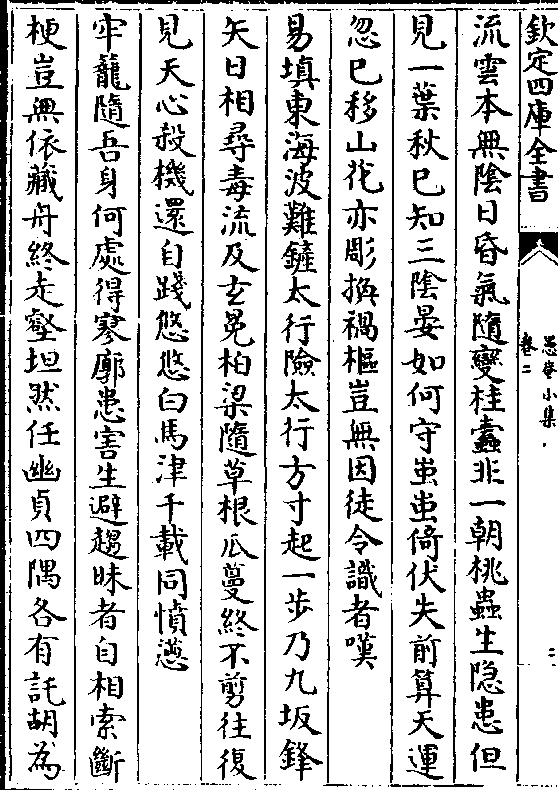 欽定四庫全書
愚菴小集
卷二
二
流雲本無陰日昏氣隨變桂蠧非一朝桃蟲生隐患但
見一葉秋已知三陰晏如何守蚩蚩倚伏失前算天運
忽已移山花亦彫換禍樞豈無因徒令識者嘆
易填東海波難鏟太行險太行方寸起一步乃九坂鋒
矢日相尋毒流及玄冕柏梁隨草根瓜蔓終不剪往復
見天心殺機還自踐悠悠白馬津千載同憤懣
牢籠隨吾身何處得寥廓患害生避趨昧者自相索斷
梗豈無依藏舟終走壑坦然任幽貞四隅各有託胡為